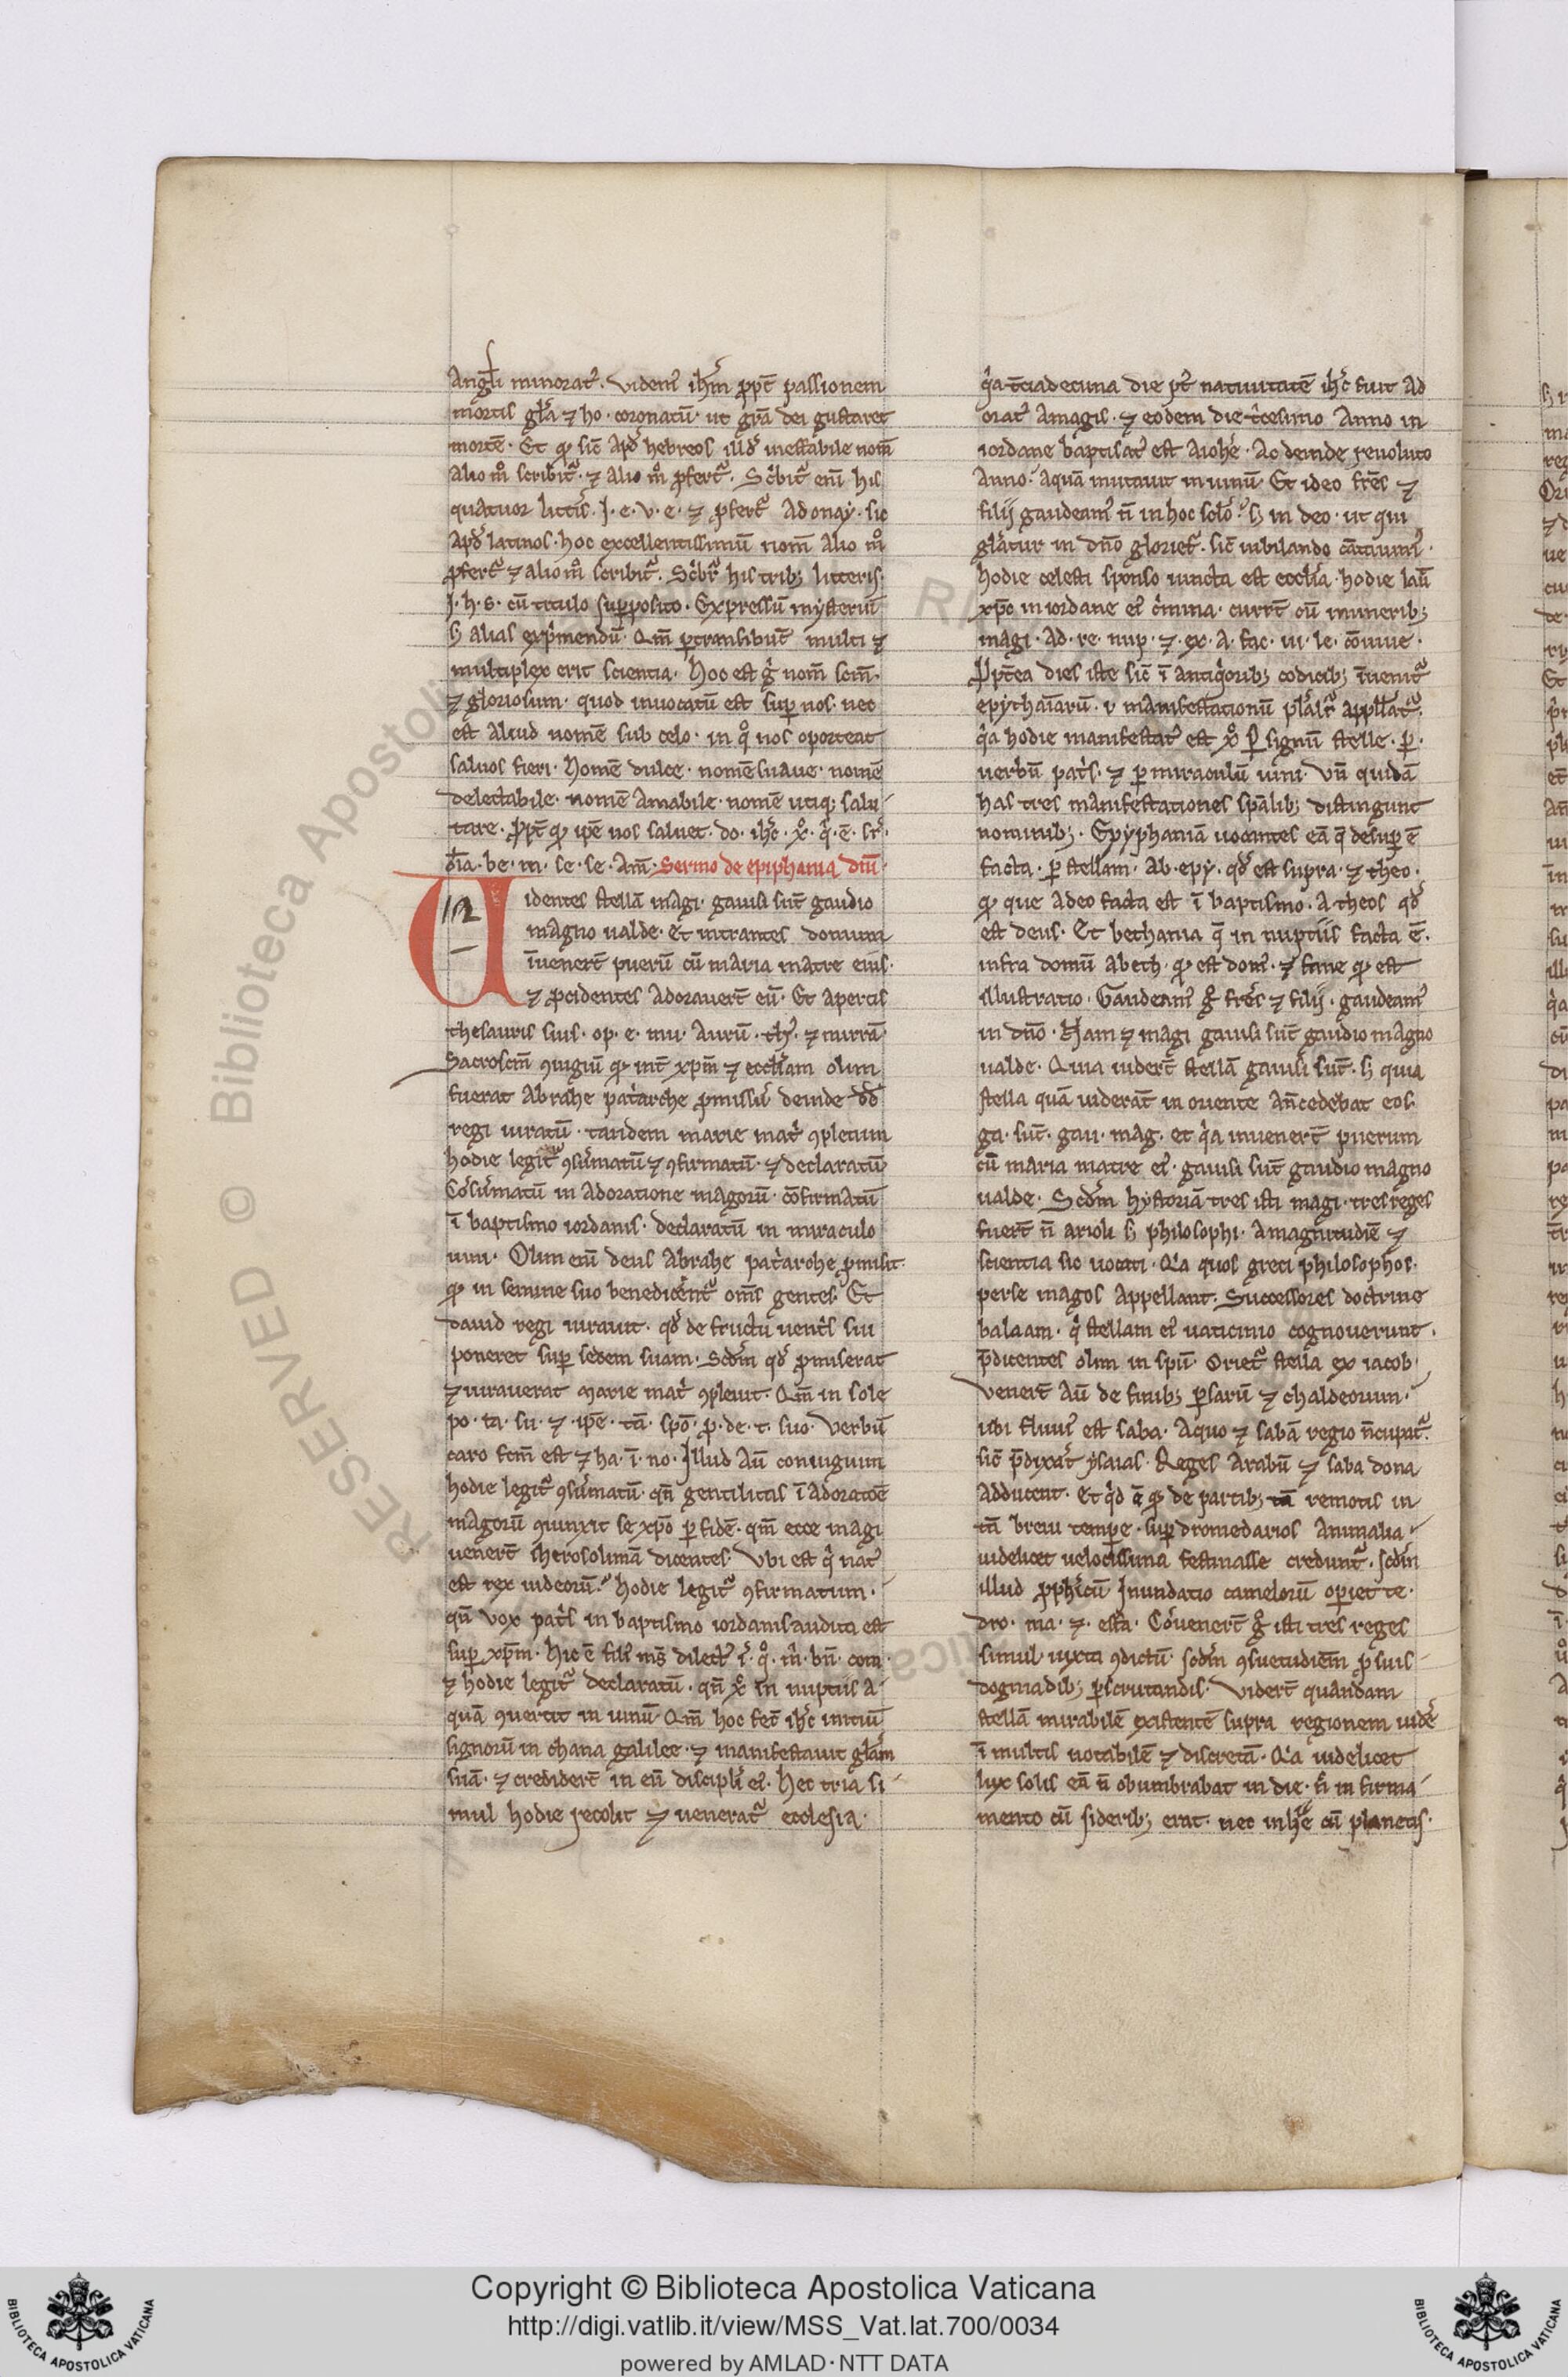 Angłi minorat᷒. videm᷒ ihm̄ ꝓpt̄ passionem
mortis gła ⁊ ho. coronatū. ut grā dei gustaret
mortē. Et ꝙ sic̄ apd̓ hebreos illd̓ ineffabile nom̄
alio mº scribit᷑. ⁊ alio mº ꝓfert᷑. Sc̓bit᷑ eni᷒ his
quatuor litt̓is. I. e. v. e. ⁊ ꝓfert᷑ adonay. sic
apd̓ latinos. hoc excellentissimū nom̄ alio mº
ꝓfert᷑ ⁊ alio mº scribit᷑. Sc̓br̄ his trib; litteris.
I. h. s. cū titulo supposito. Expressū mysteriū
ꝫ alias exp̓mendū. Qm̄ ꝑtransibūt multi ⁊
multiplex erit scientia. Hoc est g̓ nom̄ scm̄.
⁊ gloriosum. quod inuocatū est suꝑ nos. nec
est aliud nomē sub celo. in qº nos oporteat
saluos fieri. Nomē dulce. nomē suaue. nomē
delectabile. nomē amabile. nomē utiq; salu
tare. ꝓpt̄ ꝙ ipē nos saluet. do. ihc̄. xº. q̓. ē. sr̓.
oīa. be. in. se. se. Am̄. Sermo de epiphania dn̄i
Uidentes stellā magi. gauisi sūt gaudio
12
magno ualde. Et intrantes domum
īuenerūt pueru᷒ cū maria matre eius.
⁊ ꝓcidentes adorauerūt eū. Et apertis
thesauris suis. op. e. mu. aurū. th᷒. ⁊ mirrā.
Sacroscm̄ ꝯiugiū ꝙ int̄ xpm̄ ⁊ eccłiam olim
fuerat abrahe pat̓arche ꝓmissū deinde dd̄
regi iuratū. tandem marie mat̓ ꝯpletum
hodie legit᷑ ꝯsūmatū ⁊ ꝯfirmatū. ⁊ declaratū
Cōsūmatū in adoratione magorū. cōfirmatū
ī baptismo iordanis. declaratū in miraculo
uini. Olim eni᷒ deus abrahe pat̓arche ꝓmisit.
ꝙ in semine suo benedicent᷑ om̄s gentes. Et
dauid regi iurauit. qd̓ de fructu uent̓s sui
poneret suꝑ sedem suam. Scdm̄ qd̓ ꝓmiserat
⁊ iurauerat marie mat̓ ꝯpleuit. Qm̄ in sole
po. ta. su. ⁊. ipē. tā. spō. ꝓ. de. t. suo. Verbū
caro fcm̄ est ⁊ ha. ī. no. Illud aū coniugium
hodie legit᷑ ꝯsūmatū. qn̄ gentilitas ī adoratōe
magorū ꝯiunxit se xpō ꝑ fidē. qm̄ ecce magi
uenerūt iherosolimā dicentes. Vbi est q̓ nat᷒
est rex iudeorū. hodie legit᷑ ꝯfirmatum.
qn̄ vox pat̓s in baptismo iordanis audita est
suꝑ xpm̄. Hic ē fili᷒ m̄s dilect᷒ ī. qº. m̓. bn̄. com.
⁊ hodie legit᷑ declaratū. qn̄ xº in nuptiis a
quā ꝯuertit in uinū. Qm̄ hoc fecit ihc̄ initiū
signorū in chana galilee. ⁊ manifestauit głam
suā. ⁊ crediderūt in eū discipłi ei᷒. Hec tria si
mul hodie recolit ⁊ uenerat᷑ ecclesia.
q̓a t̄ciadecima die pt̓ natiuitatē ihc̄ fuit ad
orat᷒ a magis. ⁊ eodem die t̓cesimo anno in
iordane baptisat᷒ est a iohe. Ac deinde reuoluto
anno. aquā mutauit in uinū. Et ideo fr̄es ⁊
filij gaudeam᷒ n̄ in hoc scło. ꝫ in deo. ut qui
głatur in dn̄o gloriet᷑. sic̄ iubilando cātauim᷒.
Hodie celesti sponso iuncta est ecctia. hodie lau̅
xpō in iordane ei᷒ c̓mina. currūt cū munerib;
magi. ad. re. nup. ⁊. ex. a. fac. ui. le. cōuiue.
Ꝓpt̄ea dies iste sic̄ ī antiq̓orib; codicib; īuenit᷑
epyphaīarū. v manifestationū płalr̄ appłat᷑.
q̓a hodie manifestat᷒ est xº Ꝑ signū stelle. ꝑ.
uerbū pat̓s. ⁊ ꝑ miraculū uini. Vn̄ quidā
has tres manifestationes spālib; distingunt
nominib;. Epyphaniā uocantes eā q̄ desuꝑ ē
facta. ꝑ stellam. Ab. epy. qd̓ est supra. ⁊ theo.
ꝙ que a deo facta est ī baptismo. a theos qd̓
est deus. Et bethania q̄ in nuptiis facta ē.
infra domū a beth. ꝙ est dom᷒. ⁊ fane ꝙ est
illustratio. Gaudeam᷒ gº fr̄es ⁊ filij. gaudeam᷒
in dn̄o. Nam ⁊ magi gauisi sūt gaudio magno
ualde. Quia uiderūt stellā gauisi sūt. ꝫ quia
stella quā uiderāt in oriente an̄cedebat eos.
ga. sūt. gau. mag. et q̓a inuenerūt puerum
cū maria matre ei᷒. gauisi sūt gaudio magno
ualde. Scdm̄ hystoriā tres isti magi. tres reges
fuerūt n̄ arioli ꝫ philosophi. a magnitudīe ⁊
scientia sic uocati. Q̓a quos greci philosophos.
perse magos appellant. Successores doctrine
balaam. q̓ stellam ei᷒ uaticinio cognouerunt.
p̄dicentes olim in spū. Oriet᷑ stella ex iacob.
Venerūt aū de finib; ꝑsarū ⁊ chaldeorum.
ubi fluui᷒ est saba. a quo ⁊ sabā regio n̄cupat᷑.
sic̄ p̄dixat̓ ysaias. Reges arabū ⁊ saba dona
adducent. Et q̓d ē ꝙ de partib; tā remotis in
tā breui tempe. suꝑ dromedarios animalia
uidelicet uelocissima festinasse credunt᷑. scdm̄
illud ꝓph̓icū Inundatio camelorū operiet te.
dro. ma. ⁊. effa. Cōuenerūt gº isti tres reges
simul iuxta ꝯdictū. scdm̄ ꝯsuetudiē ꝓ suis
dogmadib; ꝑscrutandis. Viderūt quandam
stellā mirabilē existentē supra regionem iude᷒
ī multis notabilē ⁊ discretā. Q̓a uidelicet
lux solis eā n̄ obumbrabat in die. n̓ in firma
mento cū siderib; erat. nec cū planetis.
Copyright © Biblioteca Apostolica Vaticana
http://digi.vatlib.it/view/MSS_Vat.lat.700/0034
powered by AMLAD · NTT DATA
BIBLIOTECA APOSTOLICA VATICANA
BIBLIOTECA APOSTOLICA VATICANA